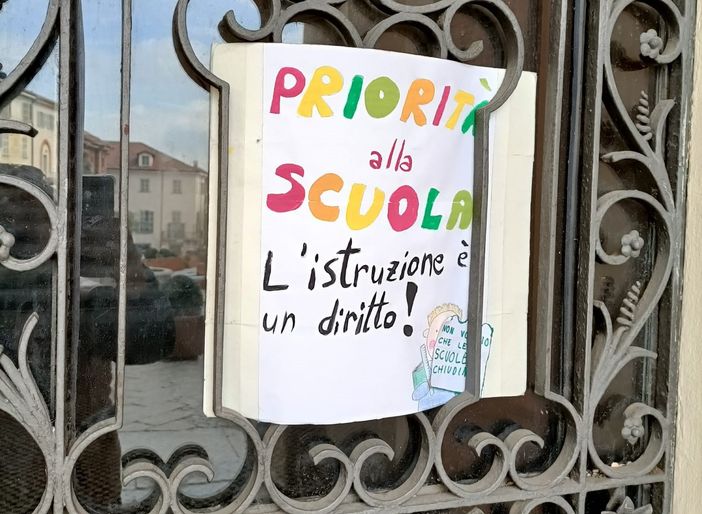 PRIORITÀ
alla
SCUOLA
L'istruzione è
un diritto!
NON
CHE LE
SCUOLE